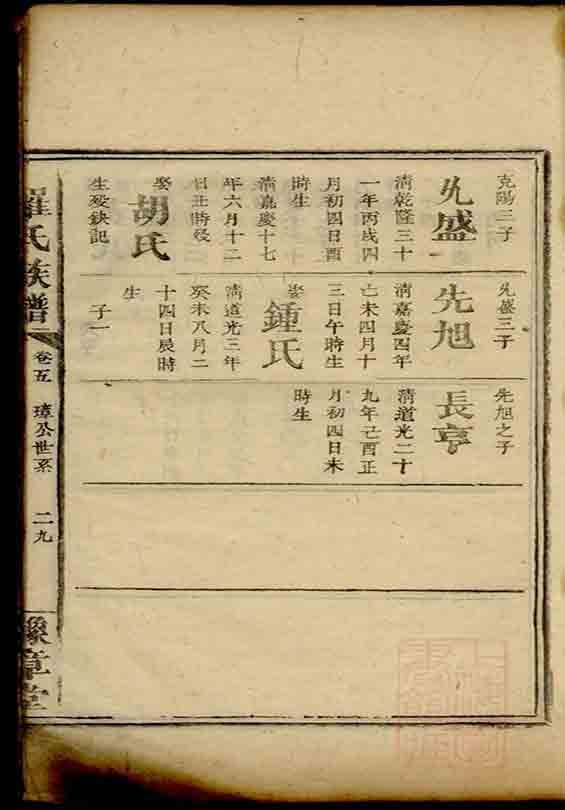 克陽三子
先盛
清乾隆三十
一年丙戌四
月初四日酉
時生
清嘉慶十七
年六月十二
日丑時歿
娶
胡氏
生歿缺記
先盛三子
先旭
清嘉慶四年
己未四月十
三日午時生
娶
鍾氏
清道光三年
癸未八月二
十四日辰時
生
子一
先旭之子
長亨
清道光二十
九年己酉正
月初四日未
時生
羅氏族譜
卷五
璋公世系
二九
豫章堂